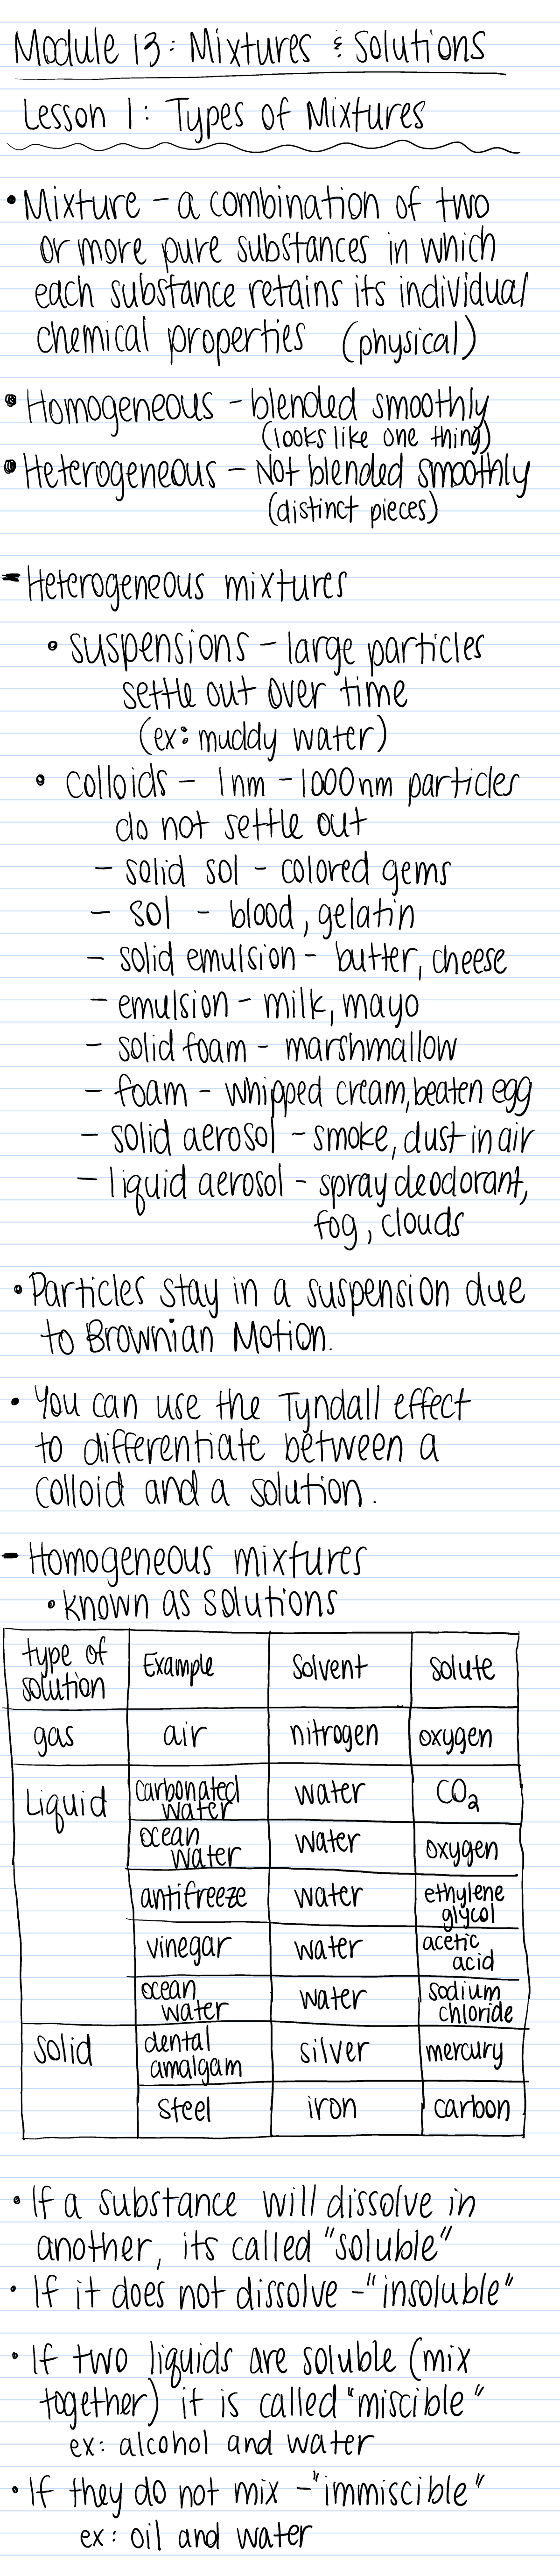 Module 13: Mixtures & Solutions
Lesson 1: Types of Mixtures
• Mixture - a combination of two
or more pure substances in which
each substance retains its individual
chemical properties (physical)
• Homogeneous - blended smoothly
(looks like one thing)
• Heterogeneous - Not blended smoothly
(distinct pieces)
- Heterogeneous mixtures
• suspensions - large particles
settle out over time
(ex: muddy water)
• colloids - 1nm - 1000nm particles
do not settle out
- solid sol - colored gems
- sol - blood, gelatin
- solid emulsion - butter, cheese
- emulsion - milk, mayo
- solid foam - marshmallow
- foam - whipped cream, beaten egg
- solid aerosol - smoke, dust in air
- liquid aerosol - spray deodorant,
fog, clouds
• Particles stay in a suspension due
to Brownian Motion.
• You can use the Tyndall effect
to differentiate between a
colloid and a solution.
- Homogeneous mixtures
• known as solutions
type of solution Example Solvent Solute
gas air nitrogen oxygen
Liquid carbonated water water CO₂
ocean water water oxygen
antifreeze water ethylene glycol
vinegar water acetic acid
ocean water water sodium chloride
solid dental amalgam silver mercury
steel iron carbon
• If a substance will dissolve in
another, its called "soluble"
• If it does not dissolve - "insoluble"
• If two liquids are soluble (mix
together) it is called "miscible"
ex: alcohol and water
• If they do not mix - "immiscible"
ex: oil and water